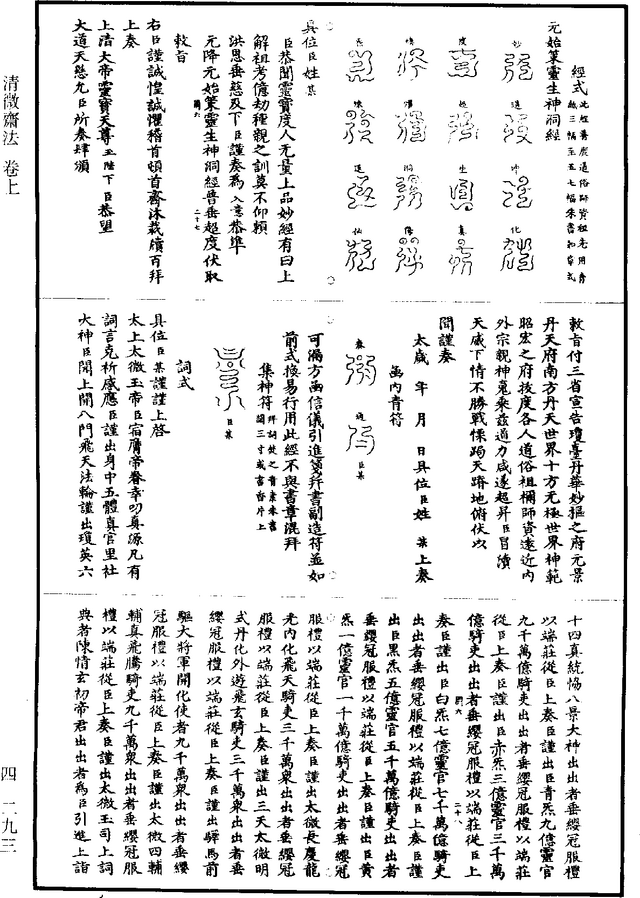 清微齋法 卷上
四 二九三
經式
元始策靈生神洞經
妙 度 情 炁
道 超 濯 煉
神 生 洞 運
化 真 陽 仙
具位臣姓某
臣恭聞靈寶度人无量上品妙經有曰上
解祖考億劫種親之訓莫不仰賴
洪恩垂慈及下臣謹奏為入意恭準
元降元始策靈生神洞經普垂超度伏取
敕旨
右臣謹誠惶誠懼稽首頓首齋沐裁牘百拜
上奏
上清大帝靈寶天尊玉陛下臣恭望
大道天慈允臣所奏肆頒
敕旨付三省宣告瓊臺丹華妙樞之府元景
丹天府南方丹天世界十方无極世界神範
昭宏之府拔度各人道俗祖禰師資遠近內
外宗親神鬼乘茲道力咸遂超昇臣冒瀆
天威下情不勝戰慄跼天蹐地俯伏以
聞謹奏
太歲 年 月 日具位臣姓 某上奏
函內青符
臣某
可漏方函信儀引進箋幷書副造符並如
前式按易行用此經不與書章混拜
集神符
臣某
詞式
具位臣某謹謹上啓
太上太微玉帝臣宿膺帝眷幸叨真源凡有
詞言克祈感應臣謹出身中五體真官里社
大神臣聞上開八門飛天法輪謹出瓊英六
十四真統惕八景大神出出者垂纓冠服禮
以端莊從臣上奏臣謹出青炁九億靈官
九千萬億騎吏出出者垂纓冠服禮以端莊
從臣上奏臣謹出赤炁三億靈官三千萬
億騎吏出出者垂纓冠服禮以端莊從臣上
奏臣謹出白炁七億靈官七千萬億騎吏
出出者垂纓冠服禮以端莊從臣上奏臣謹
出黑炁五億靈官五千萬億騎吏出出者
垂纓冠服禮以端莊從臣上奏臣謹出黃
炁一億靈官一千萬億騎吏出出者垂纓冠
服禮以端莊從臣上奏臣謹出太微長慶龍
光內化飛天騎吏三千萬衆出出者垂纓冠
服禮以端莊從臣上奏臣謹出三天太微明
式丹化外遊飛玄騎吏三千萬衆出出者垂
纓冠服禮以端莊從臣上奏臣謹出驛馬前
驅大將軍開化使者九千萬衆出出者垂纓
冠服禮以端莊從臣上奏臣謹出太微四輔
輔真飛騰騎吏九千萬衆出出者垂纓冠服
禮以端莊從臣上奏臣謹出太微玉司上詞
典者陳情玄初帝君出出者為臣引進上詣